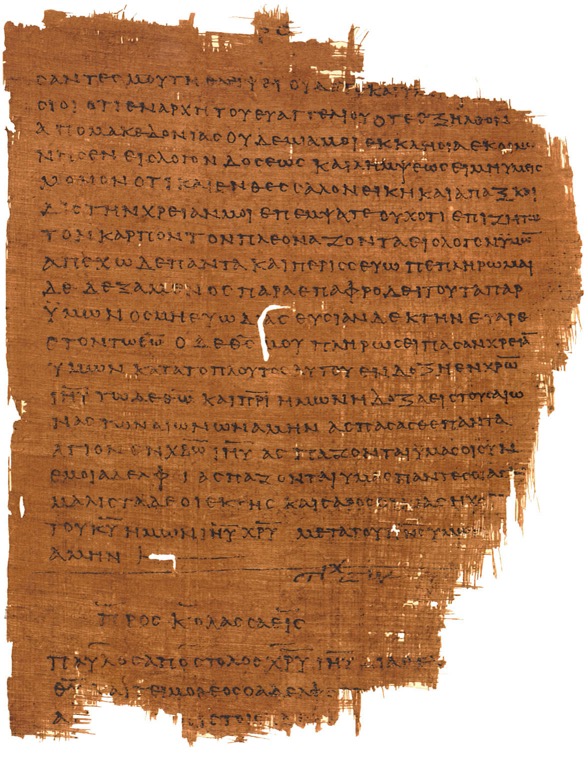 ϹΑΝΤΕϹ ΜΟΥ ΤΗ ΘΛΙΨΕΙ ΚΑΙ
ϹΙΟΙ ΟΤΙ ΕΝ ΑΡΧΗ ΤΟΥ ΕΥΑΓΓΕΛΙΟΥ ΟΤΕ ΕΞΗΛΘΟΝ
ΑΠΟ ΜΑΚΕΔΟΝΙΑϹ ΟΥΔΕΜΙΑ ΜΟΙ ΕΚΚΛΗϹΙΑ ΕΚΟΙΝΩ
ΝΗϹΕΝ ΕΙϹ ΛΟΓΟΝ ΔΟϹΕΩϹ ΚΑΙ ΛΗΜΨΕΩϹ ΕΙ ΜΗ ΥΜΕΙϹ
ΜΟΝΟΝ ΟΤΙ ΚΑΙ ΕΝ ΘΕϹϹΑΛΟΝΕΙΚΗ ΚΑΙ ΑΠΑΞ ΚΑΙ
ΔΙϹ ΤΗΝ ΧΡΕΙΑΝ ΜΟΙ ΕΠΕΜΨΑΤΕ ΟΥΧ ΟΤΙ ΕΠΙΖΗΤΩ
ΤΟΝ ΚΑΡΠΟΝ ΤΟΝ ΠΛΕΟΝΑΖΟΝΤΑ ΕΙϹ ΛΟΓΟΝ ΥΜΩ̄
ΑΠΕΧΩ ΔΕ ΠΑΝΤΑ ΚΑΙ ΠΕΡΙϹϹΕΥΩ ΠΕΠΛΗΡΩΜΑΙ
ΔΕ ΔΕΞΑΜΕΝΟϹ ΠΑΡΑ ΕΠΑΦΡΟΔΕΙΤΟΥ ΤΑ ΠΑΡ
ΥΜΩΝ ΟϹΜΗ ΕΥΩΔΙΑϹ ΘΥϹΙΑΝ ΔΕΚΤΗΝ ΕΥΑΡΕ
ϹΤΟΝ ΤΩ Θ̄Ω̄ Ο ΔΕ ΘΕΟϹ ΜΟΥ ΠΛΗΡΩϹΕΙ ΠΑϹΑΝ ΧΡΕΙᾹ
ΥΜΩΝ ΚΑΤΑ ΤΟ ΠΛΟΥΤΟϹ ΑΥΤΟΥ ΕΝ ΔΟΞΗ ΕΝ Χ̄Ρ̄Ω̄
ῙΗ̄Ῡ ΤΩ ΔΕ Θ̄Ω̄ ΚΑΙ Π̄Ρ̄Ῑ ΗΜΩΝ Η ΔΟΞΑ ΕΙϹ ΤΟΥϹ ΑΙΩ
ΝΑϹ ΤΩΝ ΑΙΩΝΩΝ ΑΜΗΝ ΑϹΠΑϹΑϹΘΕ ΠΑΝΤΑ
ΑΓΙΟΝ ΕΝ Χ̄Ρ̄Ω̄ ῙΗ̄Ῡ ΑϹΠΑΖΟΝΤΑΙ ΥΜΑϹ ΟΙ ϹΥΝ
ΕΜΟΙ ΑΔΕΛΦΟΙ ΑϹΠΑΖΟΝΤΑΙ ΥΜΑϹ ΠΑΝΤΕϹ ΟΙ ΑΓΙ
ΜΑΛΙϹΤΑ ΔΕ ΟΙ ΕΚ ΤΗϹ ΚΑΙϹΑΡΟϹ ΟΙΚΙΑϹ Η Χ
ΤΟΥ Κ̄Ῡ ΗΜΩΝ ῙΗ̄Ῡ Χ̄Ρ̄Ῡ ΜΕΤΑ ΤΟΥ ΥΜΩ
ΑΜΗΝ
ΠΡΟϹ ΚΟΛΑϹϹΑΕΙϹ
ΠΑΥΛΟϹ ΑΠΟϹΤΟΛΟϹ Χ̄Ρ̄Ῡ ῙΗ̄Ῡ ΔΙΑ
Θ̄Ῡ ΚΑΙ ΤΕΙΜΟΘΕΟϹ Ο ΑΔΕΛΦ